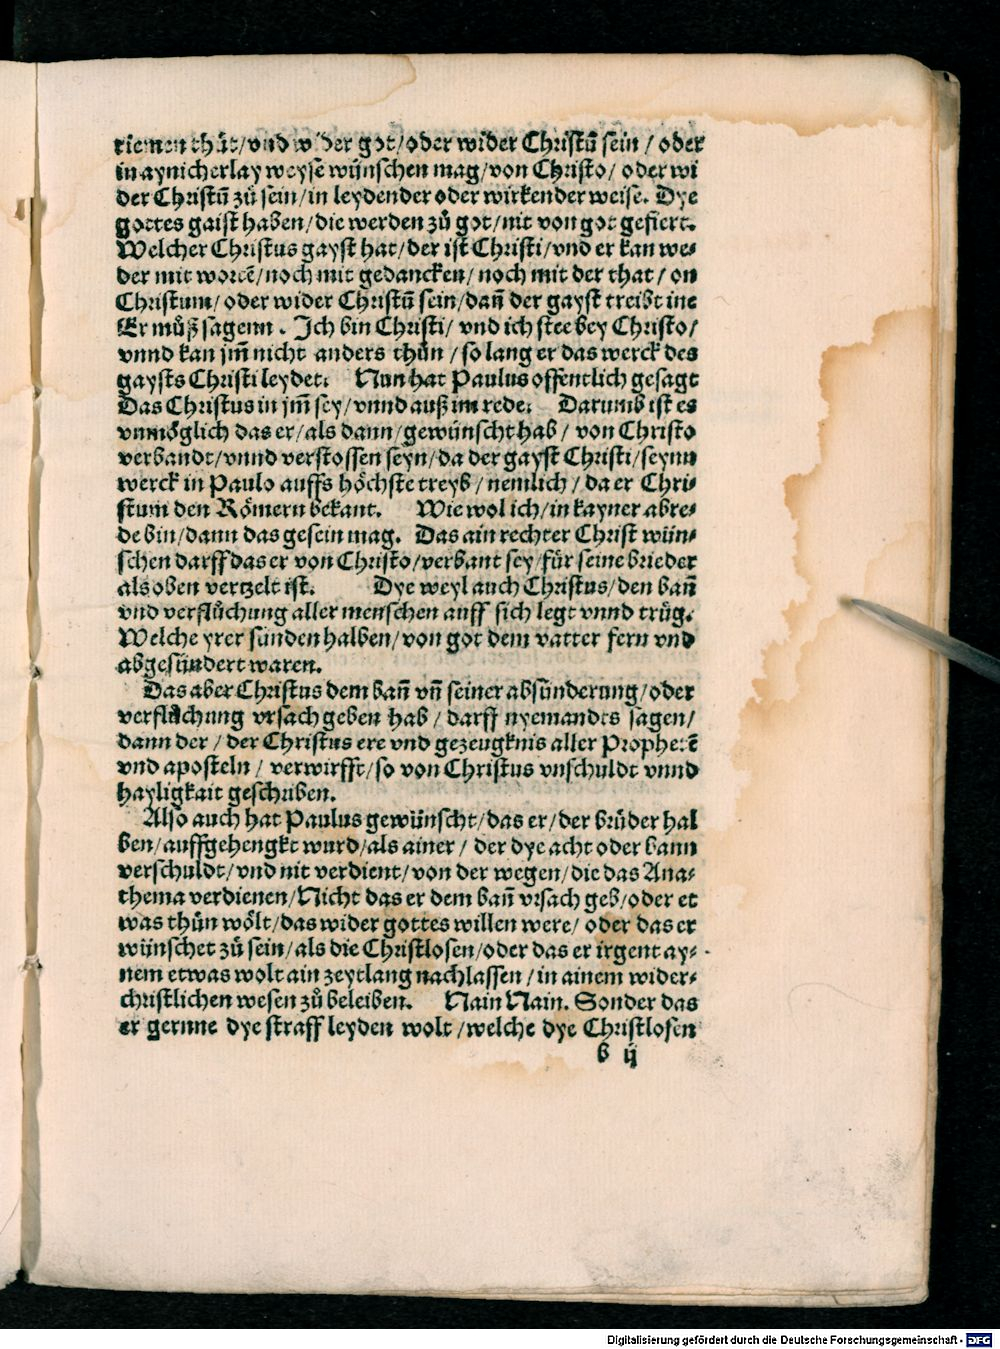 riemen thůt/vnd wider got/oder wider Christū sein / oder
in aynicherlay weyse wünschen mag/von Christo/ oder wi
der Christū zů sein/in leydender oder wirkender weise. Dye
gottes gaist haben/die werden zů got/nit von got gefiert.
Welcher Christus gayst hat/der ist Christi/vnd er kan we⸗
der mit wortē/noch mit gedancken/noch mit der that/ on
Christum/ oder wider Christū sein/dañ der gayst treibt ine
Er můß sagenn . Ich bin Christi/ vnd ich stee bey Christo/
vnnd kan jm̄ nicht anders thůn /so lang er das werck des
gaysts Christi leydet. Nun hat Paulus offentlich gesagt
Das Christus in jm̄ sey/vnnd auß im rede. Darumb ist es
vnmöglich das er/als dann/gewünscht hab/ von Christo
verbandt/vnnd verstossen seyn/da der gayst Christi/seynn
werck in Paulo auffs höchste treyb/ nemlich/ da er Chri⸗
stum den Römern bekant. Wie wol ich/in kayner abre⸗
de bin/dann das gesein mag. Das ain rechter Christ wün⸗
schen darff das er von Christo/verbant sey/für seine brieder
als oben vertzelt ist. Dye weyl auch Christus/den bañ
vnd verflůchung aller menschen auff sich legt vnnd trůg.
Welche yrer sünden halben/von got dem vatter fern vnd
abgesündert waren.
Das aber Christus dem bañ vñ seiner absünderung/oder
verflůchung vrsach geben hab/ darff nyemandts sagen/
dann der/ der Christus ere vnd gezeugknis aller Prophetē
vnd aposteln/ verwirfft/so von Christus vnschuldt vnnd
hayligkait geschriben.
Also auch hat Paulus gewünscht/das er/der brüder hal
ben/auffgehengkt wurd/als ainer/ der dye acht oder bann
verschuldt/vnd nit verdient/von der wegen/die das Ana⸗
thema verdienen/Nicht das er dem bañ vrsach geb/oder et
was thůn wölt/das wider gottes willen were/ oder das er
wünschet zů sein/als die Christlosen/oder das er irgent ay⸗
nem etwas wolt ain zeytlang nachlassen/in ainem wider⸗
christlichen wesen zů beleiben. Nain Nain. Sonder das
er gernne dye straff leyden wolt /welche dye Christlosen
b ij
Digitalisierung gefördert durch die Deutsche Forschungsgemeinschaft - DFG